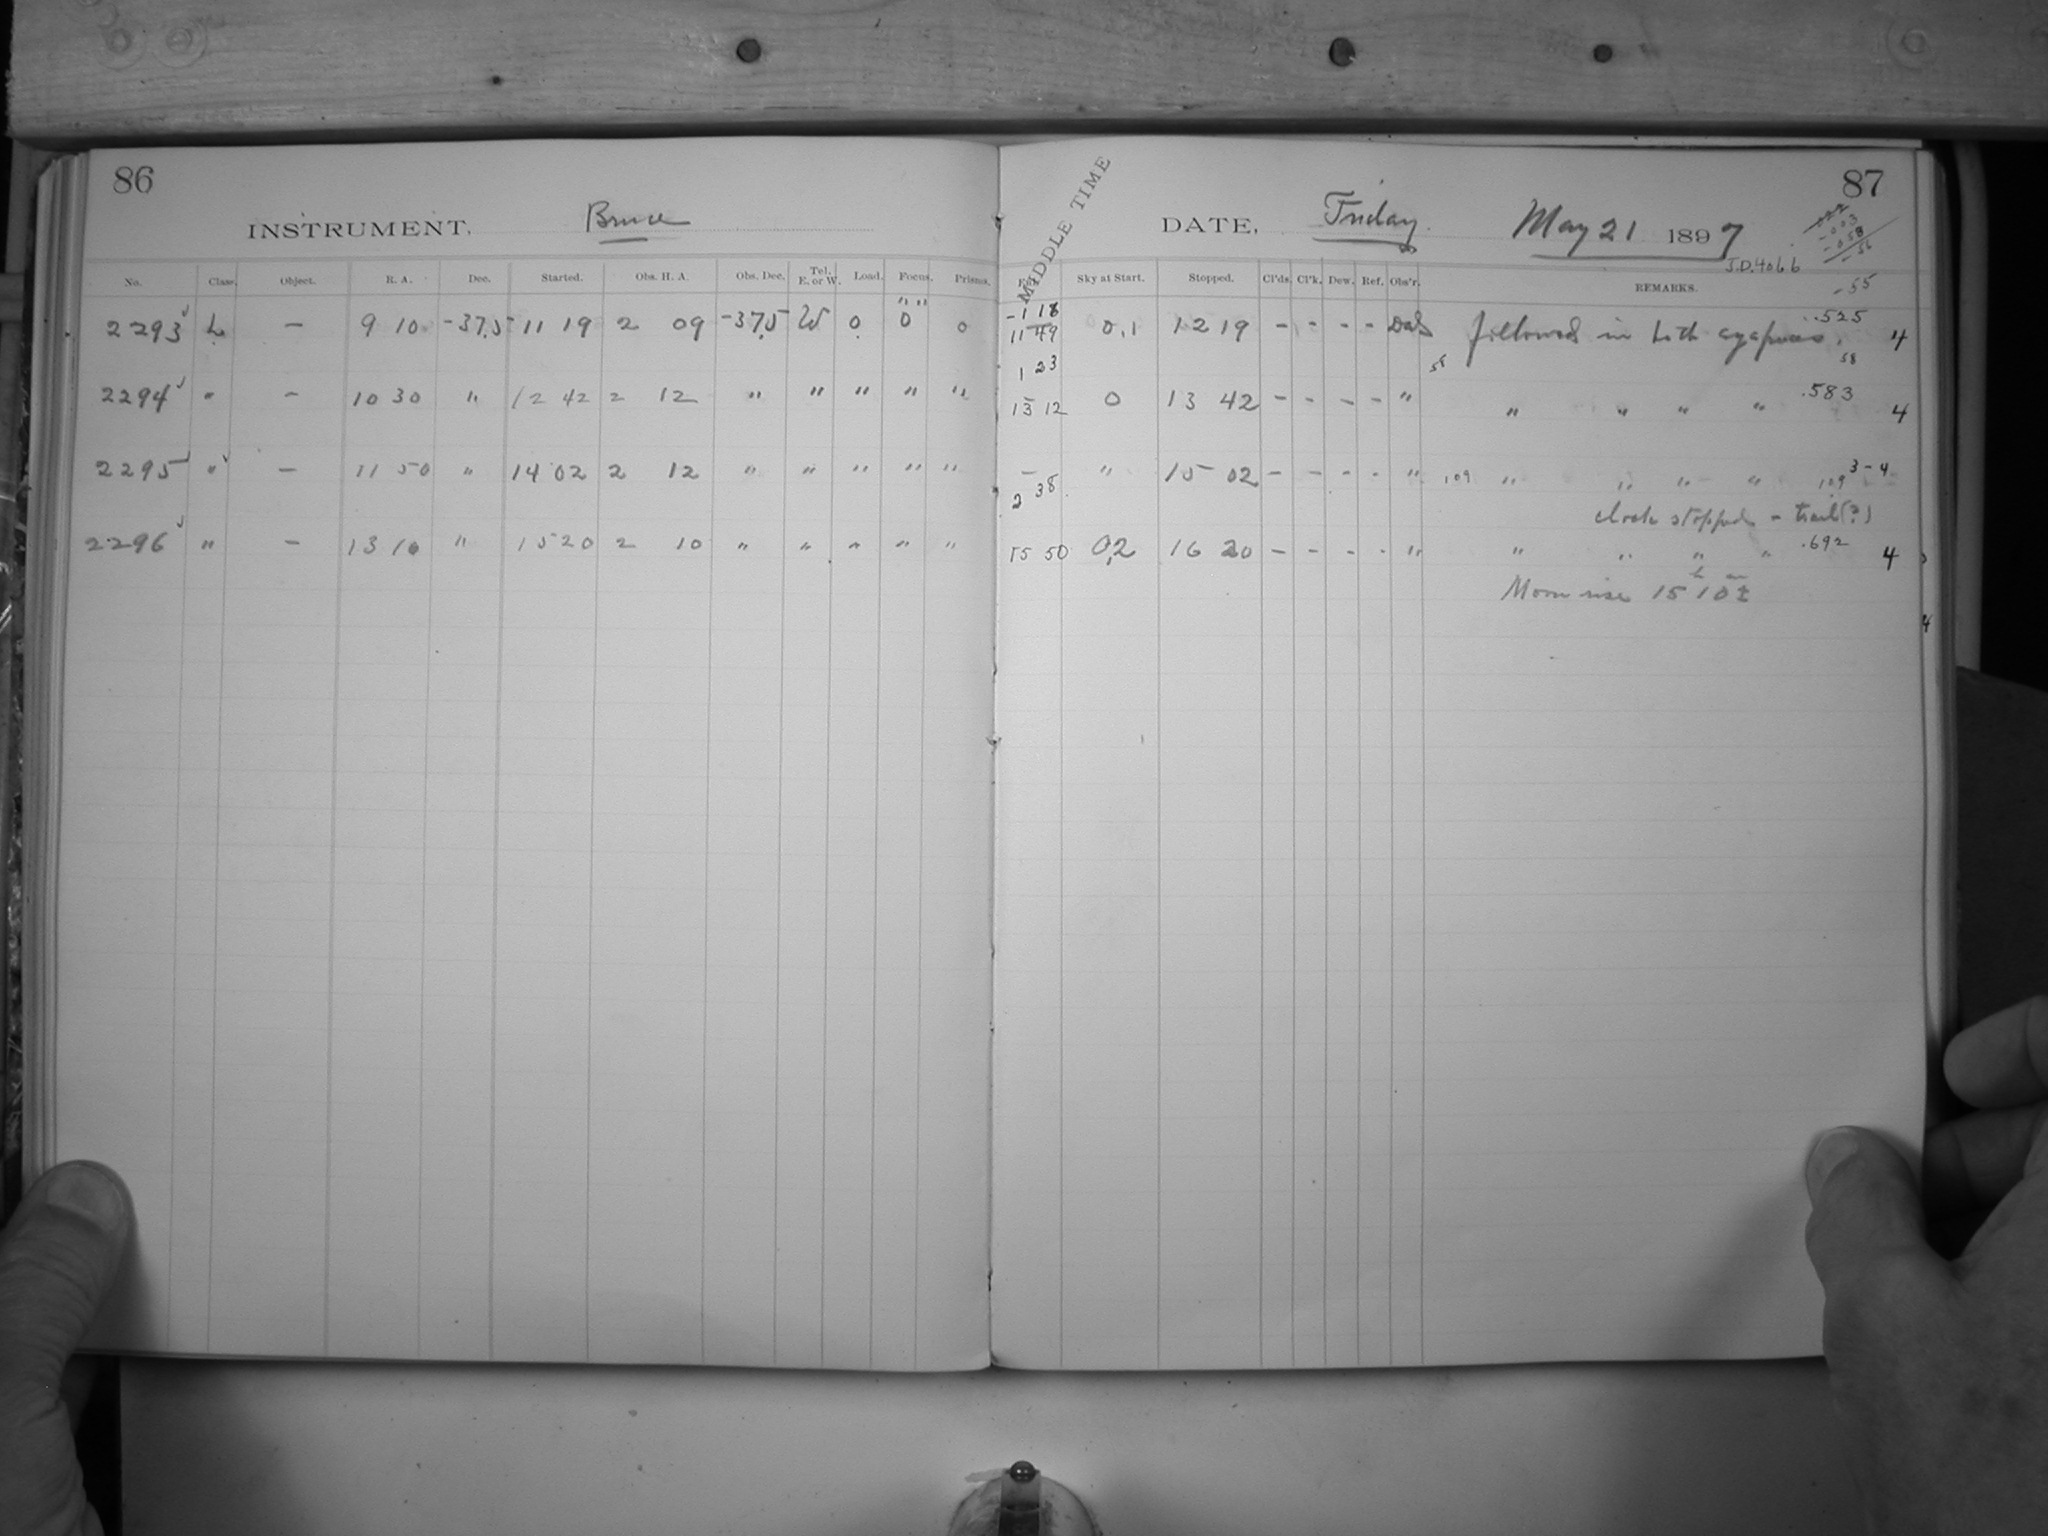 86
INSTRUMENT, Bruce
No. Class. Object. R. A. Dec. Started. Obs. H. A. Obs. Dec. Tel. E. or W. Load. Focus. Prisms.
2293 L — 9 10 -37.5 11 19 2 09 -37.5 W 0 0 0
2294 " — 10 30 " 12 42 2 12 " " " " "
2295 " — 11 50 " 14 02 2 12 " " " " "
2296 " — 13 10 " 15 20 2 10 " " " " "
MIDDLE TIME
87
DATE, Friday May 21 1897
J.D. 4066
Sky at Start. Stopped. Cl'ds. Cl'k. Dew. Ref. Obs'r. REMARKS.
-55
-1 18
11 49 0.1 12 19 - - - - followed in both .525 4
1 23 58 58
13 12 0 13 42 - - - - " " " " " .583 4
— " 15 02 - - - - " 109 " " " " 109 3-4
2 38
clock stopped - trail (?)
15 50 0.2 16 20 - - - - " " " " " .692 4
Moon rise 15h 10m ±
4